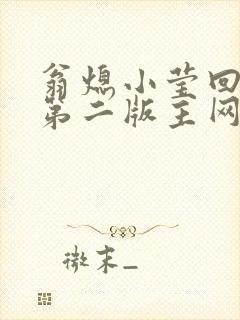 翁熄小莹回
第二版主网
微末_